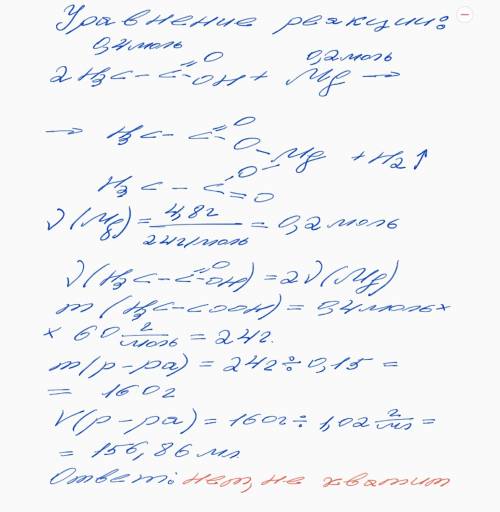 Уравнение реакции:
0,4моль 0,2моль
2H₃C – C =O –OH + Mg →
→ H₃C – C =O –O – Mg + H₂↑
H₃C – C –O – =O
ν(Mg) = 4,8г / 24г/моль = 0,2моль
ν(H₃C–C=O–OH) = 2ν(Mg)
m(H₃C–COOH) = 0,4моль ×
× 60 г/моль = 24г.
m(р-ра) = 24г ÷ 0,15 =
= 160г
V(р-ра) = 160г ÷ 1,02 г/мл =
= 156,86 мл
Ответ: нет, не хватит